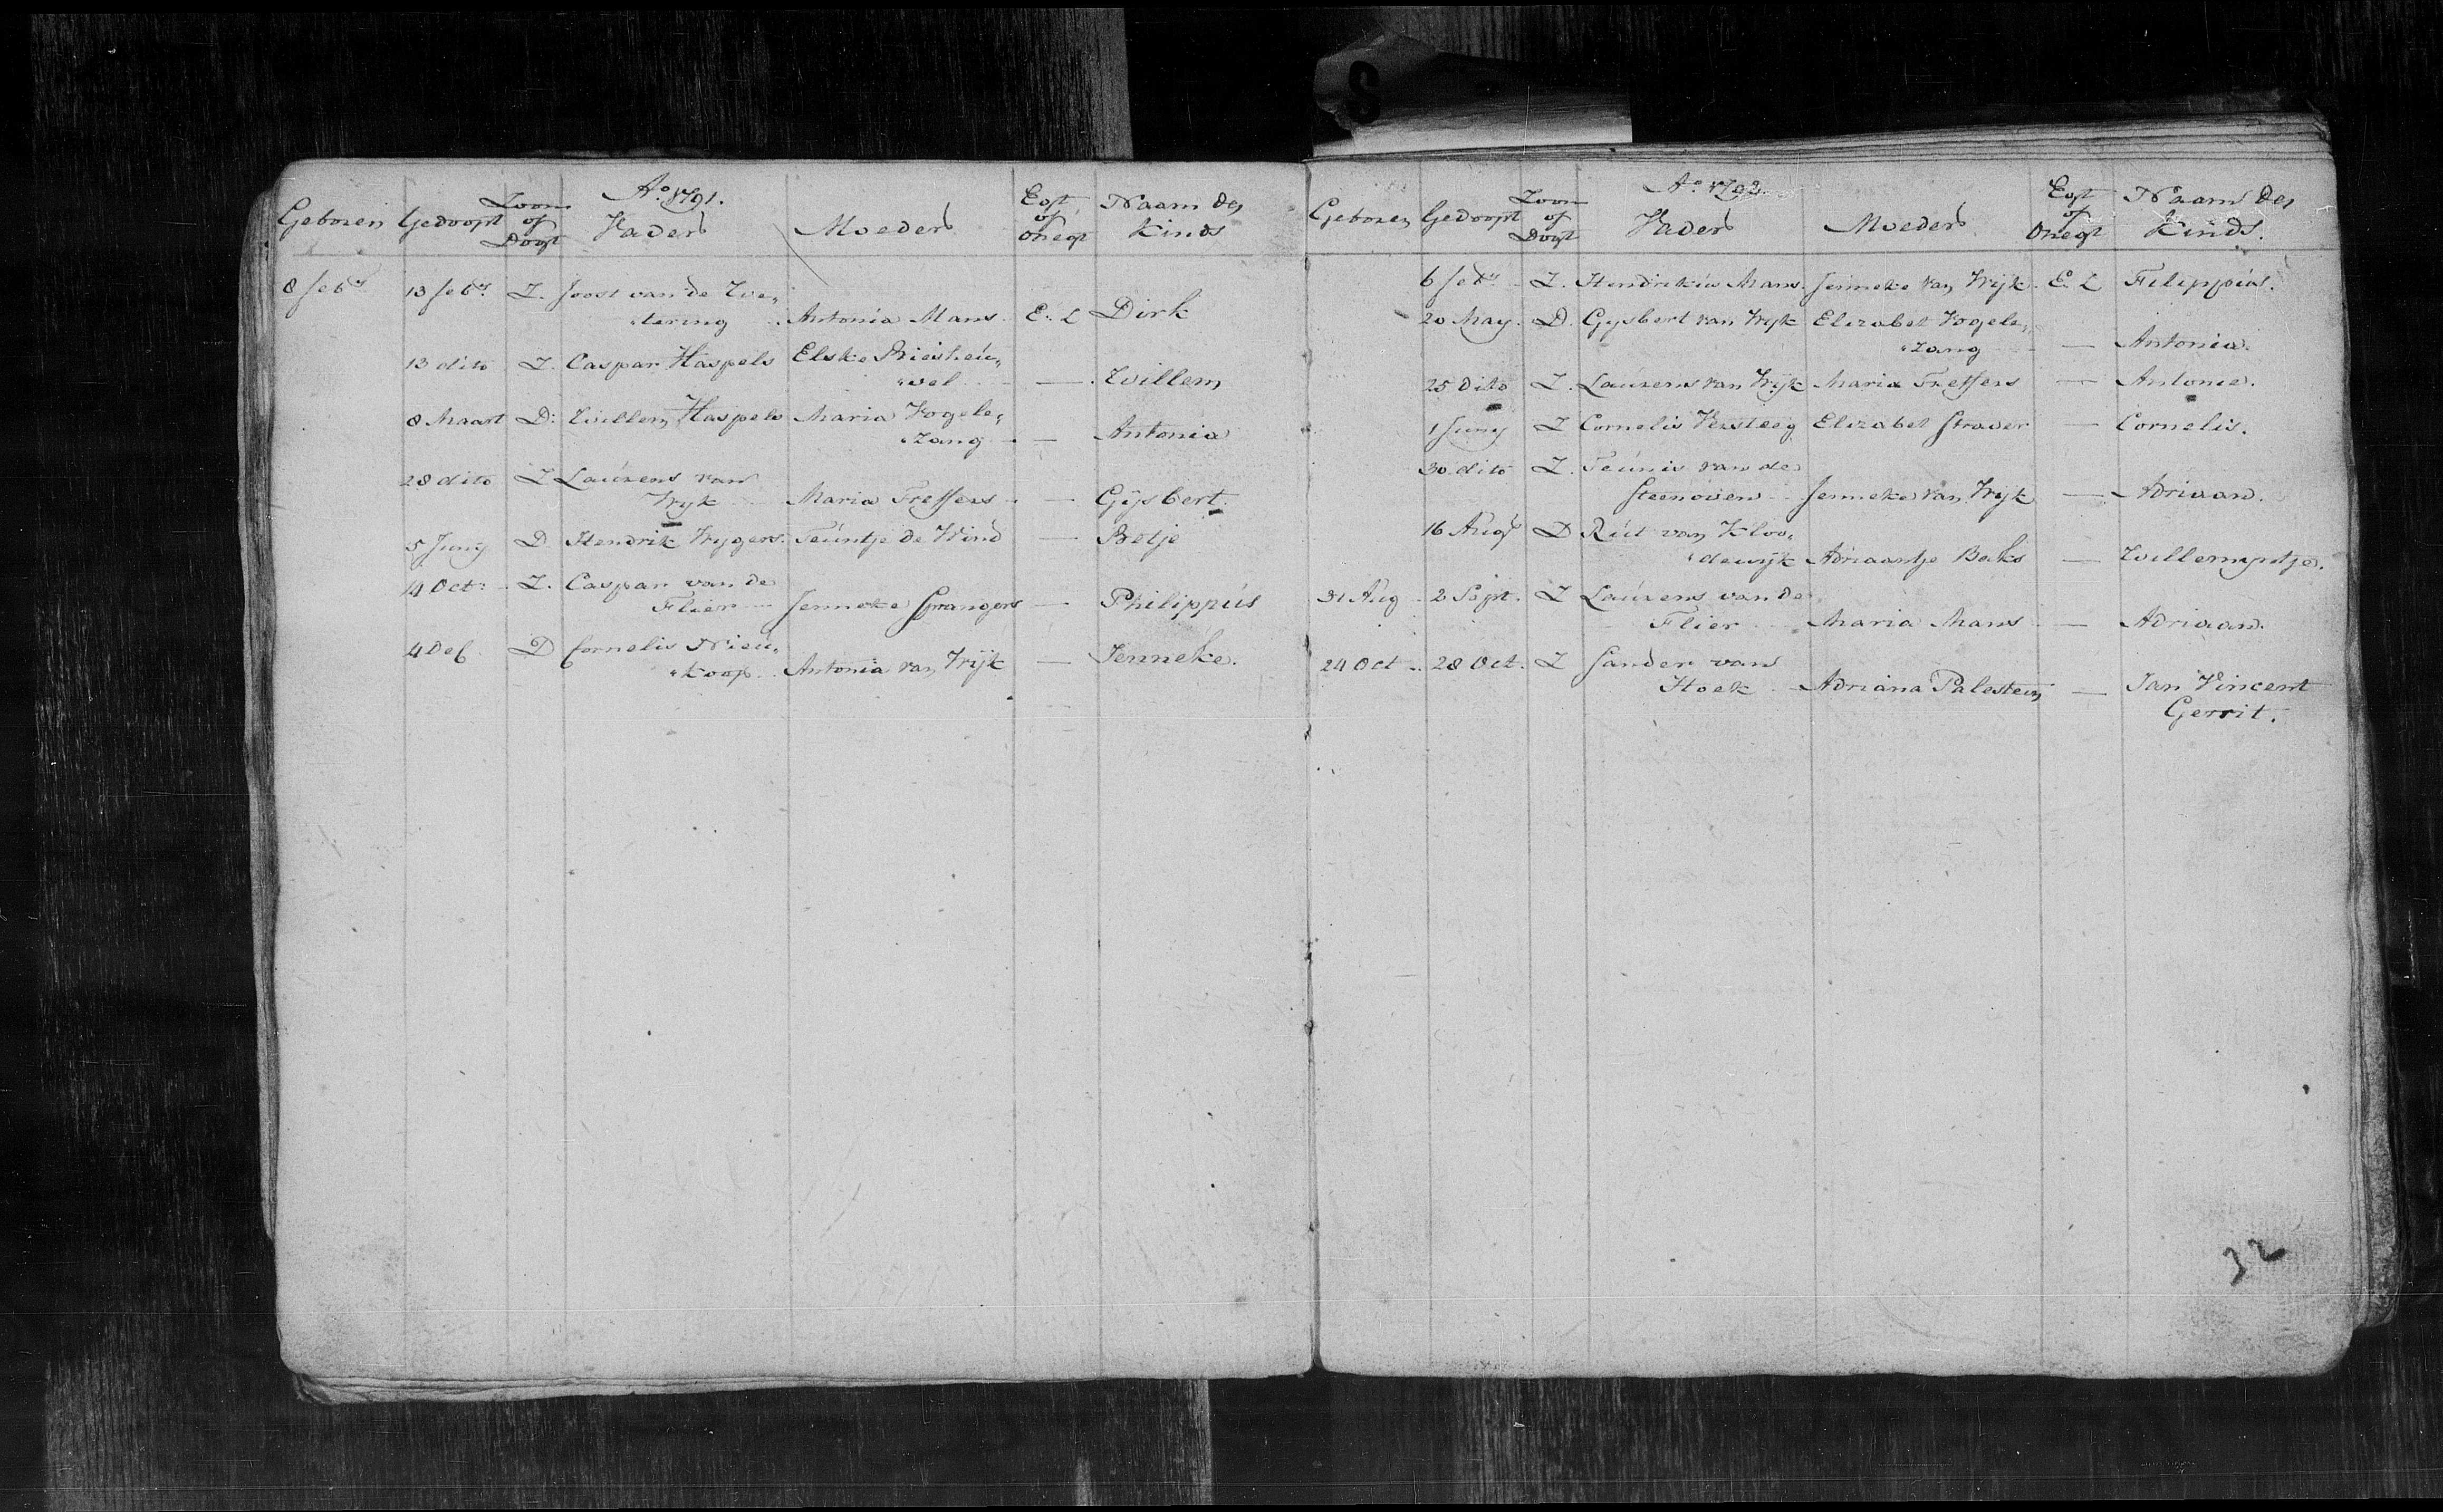 Ao. 1791.
Geboren Gedoopt Zoon of Dogt Vader Moeder Egt of Onegt Naam des Kinds
8 Febr. 13 Febr. Z. Joost van de We„
„tering Antonia Mans E. L Dirk
13 dito Z. Caspar Haspels Elske Biesheu„
„vel — Willem
8 Maart D: Willem Haspels Maria Vogele„
„zang — Antonia
28 dito Z Laurens van
Wyk Maria Treffers — Gijsbert.
5 Juny D Hendrik Wygers Teuntje de Wind — Betje
14 Oct: Z. Caspar van de
Flier Jenneke Sprangers — Philippus
4 Dec. D Cornelis Nieu„
„koop Antonia van Wijk — Jenneke.
Ao. 1792.
Geboren Gedoopt Zoon of Dogt Vader Moeder Egt of Onegt Naam des Kinds.
6 Febr. Z. Hendrikus Mans Jenneke van Wijk E. L Filippus.
20 May. D. Gysbert van Wyk Elizabet Vogele„
„zang — Antonia.
25 dito Z. Laurens van Wijk Maria Treffers — Antonie.
1 Juny Z Cornelis Versteeg Elizabet Straver — Cornelis.
30 dito Z. Teunis van de
Steenoven Jenneke van Wijk — Adriaan.
16 Augt D Rut van Kloo„
„dewijk Adriaantje Baks — Willempntje.
31 Aug 2 Sept. Z Laurens van de
Flier Maria Mans — Adriaan.
24 Oct 28 Oct. Z Sander van
Hoek Adriana Palestein — Jan Vincent
Gerrit.
32
S